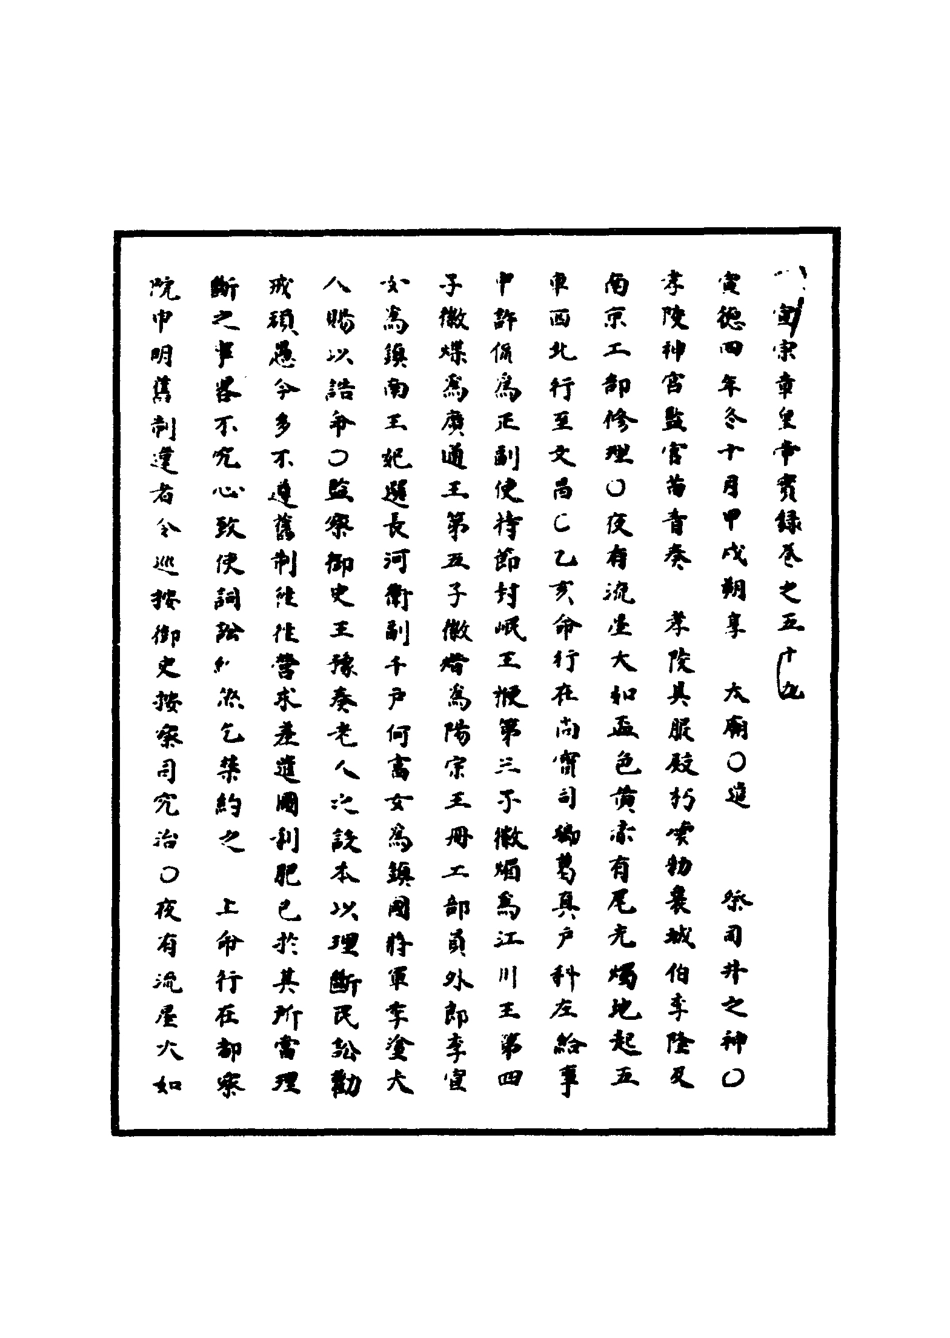 宣宗章皇帝實錄卷之五十九
宣德四年冬十月甲戌朔享 太廟○進 祭司井之神○
孝陵神宮監官苗青奏 孝陵具服殿朽壞勑襄城伯李隆及
南京工部修理○夜有流星大如盃色黃赤有尾光燭地起五
車西北行至文昌○乙亥命行在尚寶司卿葛真戶科左給事
中許侃為正副使持節封岷王楩第三子徽焆為江川王第四
子徽煠為廣通王第五子徽焟為陽宗王冊工部員外郎李宣
女為鎮南王妃選長河衛副千戶何富女為鎮國將軍季塗夫
人賜以誥命○監察御史王豫奏老人之設本以理斷民訟勸
戒頑愚今多不遵舊制往往營求差遣圖利肥己於其所當理
斷之事畧不究心致使詞訟紛然乞禁約之 上命行在都察
院申明舊制違者令巡按御史按察司究治○夜有流星大如